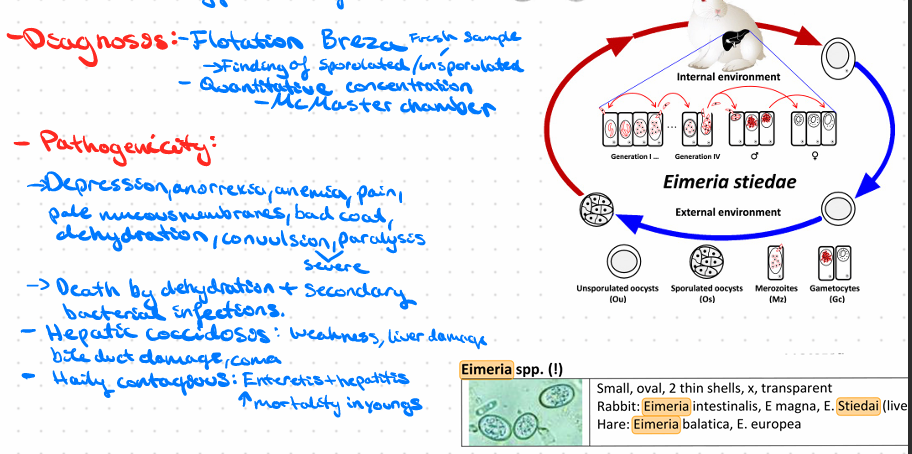 - Diagnosis: - Flotation Breza Fresh sample
→ Finding of sporulated/unsporulated
- Quantitative concentration
- McMaster chamber
- Pathogenicity:
→ Depression, anorrexia, anemia, pain,
pale mucous membranes, bad coat,
dehydration, convulsion, paralysis
severe
→ Death by dehydration + secondary
bacterial infections.
- Hepatic coccidosos: weakness, liver damage
bile duct damage, coma
- Haily contagious: Enteretis + hepatitis
↑ mortality in youngs
Internal environment
Generation I ... Generation IV ♂ ♀
Eimeria stiedae
External environment
Unsporulated oocysts (Ou)
Sporulated oocysts (Os)
Merozoites (Mz)
Gametocytes (Gc)
Eimeria spp. (!)
Small, oval, 2 thin shells, x, transparent
Rabbit: Eimeria intestinalis, E magna, E. Stiedai (live
Hare: Eimeria balatica, E. europea